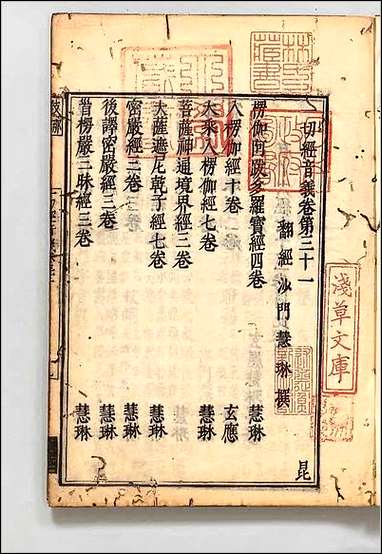 一切經音義卷第三十一
翻經沙門慧琳撰
楞伽阿跋多羅寶經四卷 慧琳
入楞伽經十卷 玄應
大乘入楞伽經七卷 慧琳
菩薩神通境界經三卷
大薩遮尼乾子經七卷 慧琳
密嚴經三卷 慧琳
後譯密嚴經三卷 慧琳
首楞嚴三昧經三卷 慧琳
昆
淺草文庫